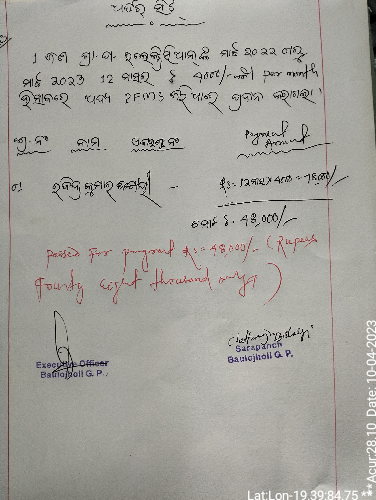 1 ଜଣ ଗ୍ରା. ପ. ମାର୍ଚ୍ଚ 2022 ଠାରୁ
ମାର୍ଚ୍ଚ 2023 12 ମାସର ₹ 4000/- per month
ହିସାବରେ PFMS ଜରିଆରେ ପ୍ରଦାନ କରାଗଲା।
କ୍ର. ନଂ ନାମ ଏକାଉଣ୍ଟ ନଂ Payment Amount
01 ରବିନ୍ଦ୍ର କୁମାର - Rs = 12 × 4000 = 48,000/-
ମୋଟ ₹. 48,000/-
Passed For payment Rs = 48,000/- (Rupees
Fourty eight thousand only)
Executive Officer
Baulojholi G. P.
Sarapanch
Baulojholi G. P.
Lat:Lon-19.39:84.75 ***Acur:28.10 Date: 10-04-2023